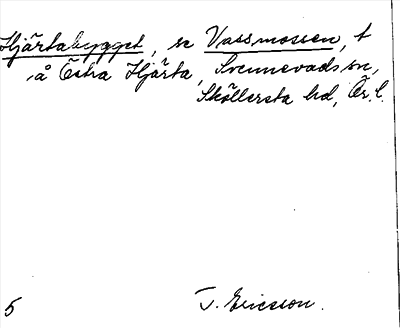 Hjärtabygget, se Vassmossen, t
å Östra Hjärta, Svennevads sn,
Sköllersta hd, Ör. l.
5
T. Ericsson.